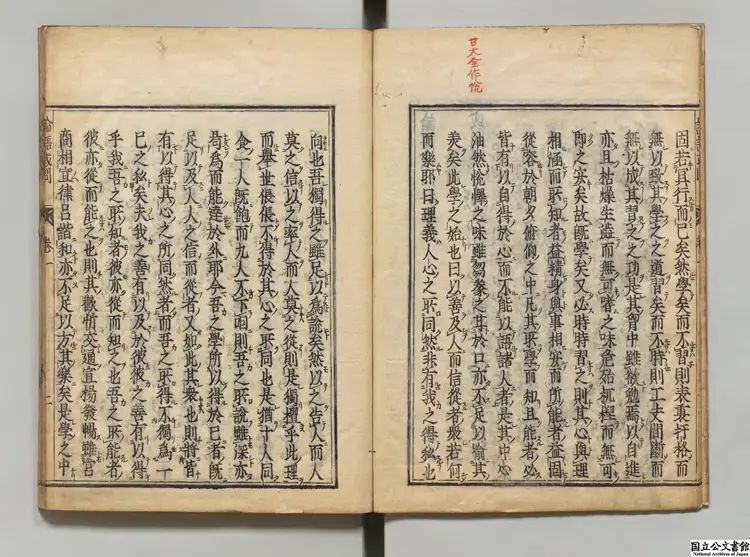 甘大全作恱
因若冝行而已矣然學矣而不習則表裏扞格而
無以致其學之之道習矣而不時則工夫間斷而
無以成其習之之功是其胷中雖欲勉焉以自進
亦且枯燥生澁而無可嗜之味危殆杌隉而無可
即之安矣故既學矣又必時時習之則其心與理
相涵而所知者益精身與事相安而所能者益固
從容於朝夕俯仰之中凡其所學而知且能者必
皆有以自得於心而不能以語諸人者是其中心
油然恱懌之味雖芻豢之甘於口亦不足以喻其
美矣此學之始也曰以善及人而信從者衆若何
而樂耶曰理義人心之所同然非有我之得私也
向也吾獨得之雖足以為說矣然以之告人而人
莫之信以之率人而人莫之從則是獨擅乎此理
而舉世倀倀不得於其心之所同也是猶十人同
食一人既飽而九人不下咽則吾之所說雖深亦
曷為而能達於外耶今吾之學所以得於己者既
足以及人人之信而從者又如此其衆也則將皆
有以得其心之所同然者而吾之所得不獨為一
己之私矣夫我之善有以及於彼彼之善有以得
乎我吾之所知者彼亦從而知之也吾之所能者
彼亦從而能之也則其歡忻交通宣揚發暢雖宮
商相宣律呂諧和亦不足以方其樂矣是學之中
論語或問 卷一 二
国立公文書館
National Archives of Japan